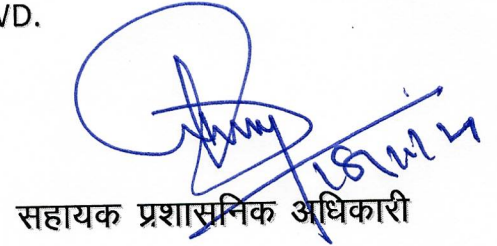 VD.
सहायक प्रशासनिक अधिकारी